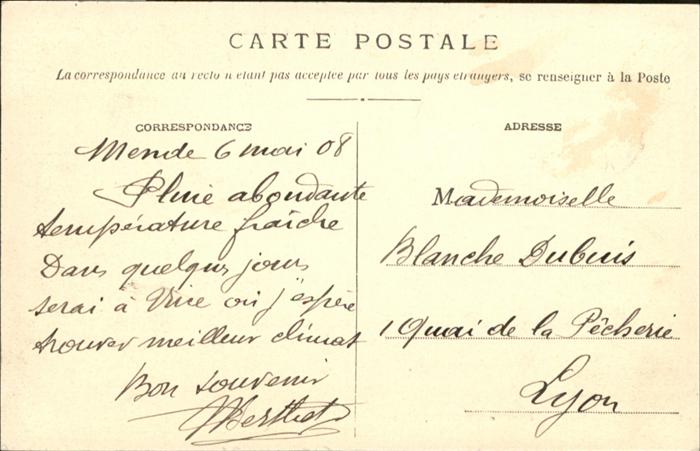 CARTE POSTALE
La correspondance au recto n'étant pas acceptée par tous les pays étrangers, se renseigner à la Poste
CORRESPONDANCE
Mende 6 mai 08
Pluie abondante
température fraîche
Dans quelques jours
serai à où j'espère
trouver meilleur climat
Bon souvenir
ADRESSE
Mademoiselle
Blanche Dubuis
1 Quai de la Pêcherie
Lyon